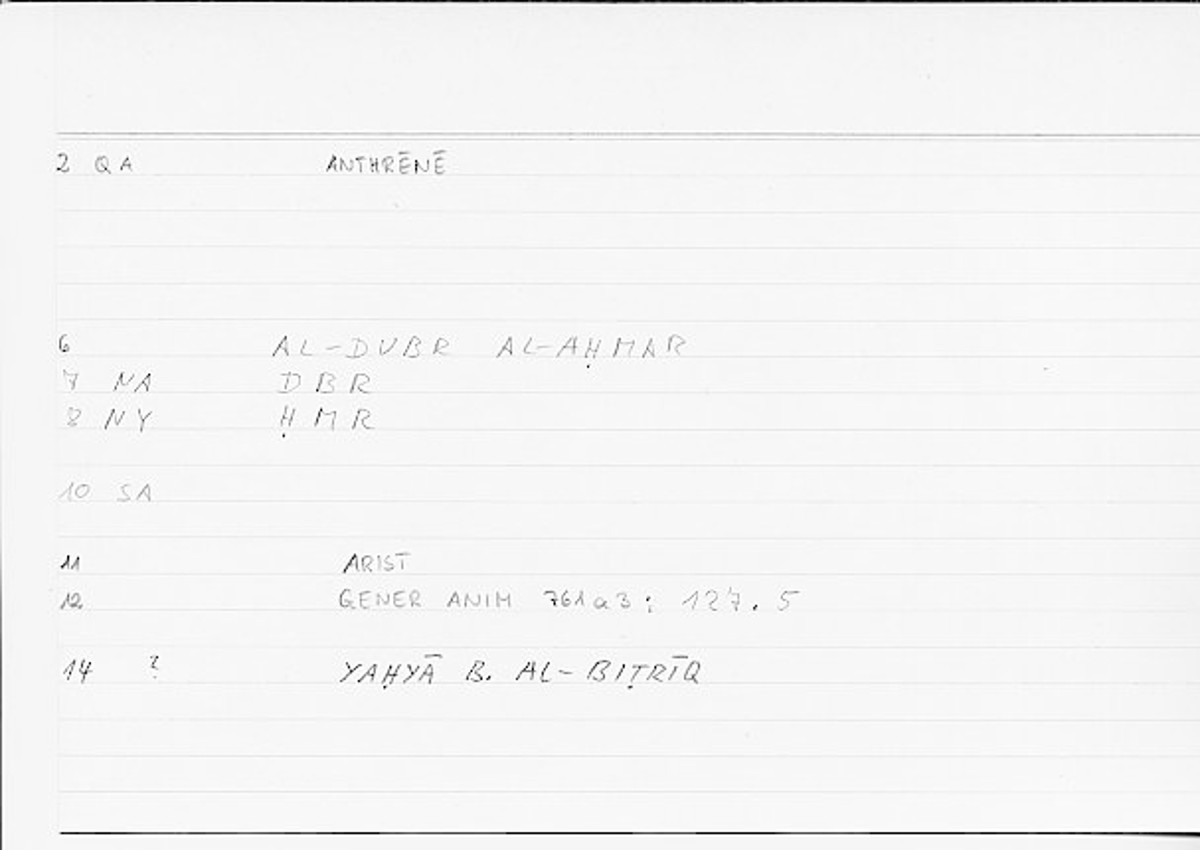 2 QA ANTHRĒNĒ
6 AL-DUBR AL-AḤMAR
7 NA DBR
8 NY ḤMR
10 SA
11 ARIST
12 GENER ANIM 761a3; 127.5
14 ? YAḤYĀ B. AL-BIṬRĪQ